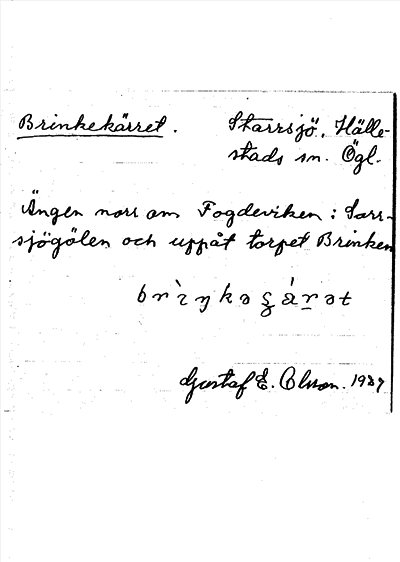 Brinkekärret. Starrsjö, Hälle-
stads sn. Ögl.
Ängen norr om Fogdeviken i Sarr-
sjögölen och uppåt torpet Brinken
Gustaf E. Olsson. 1937